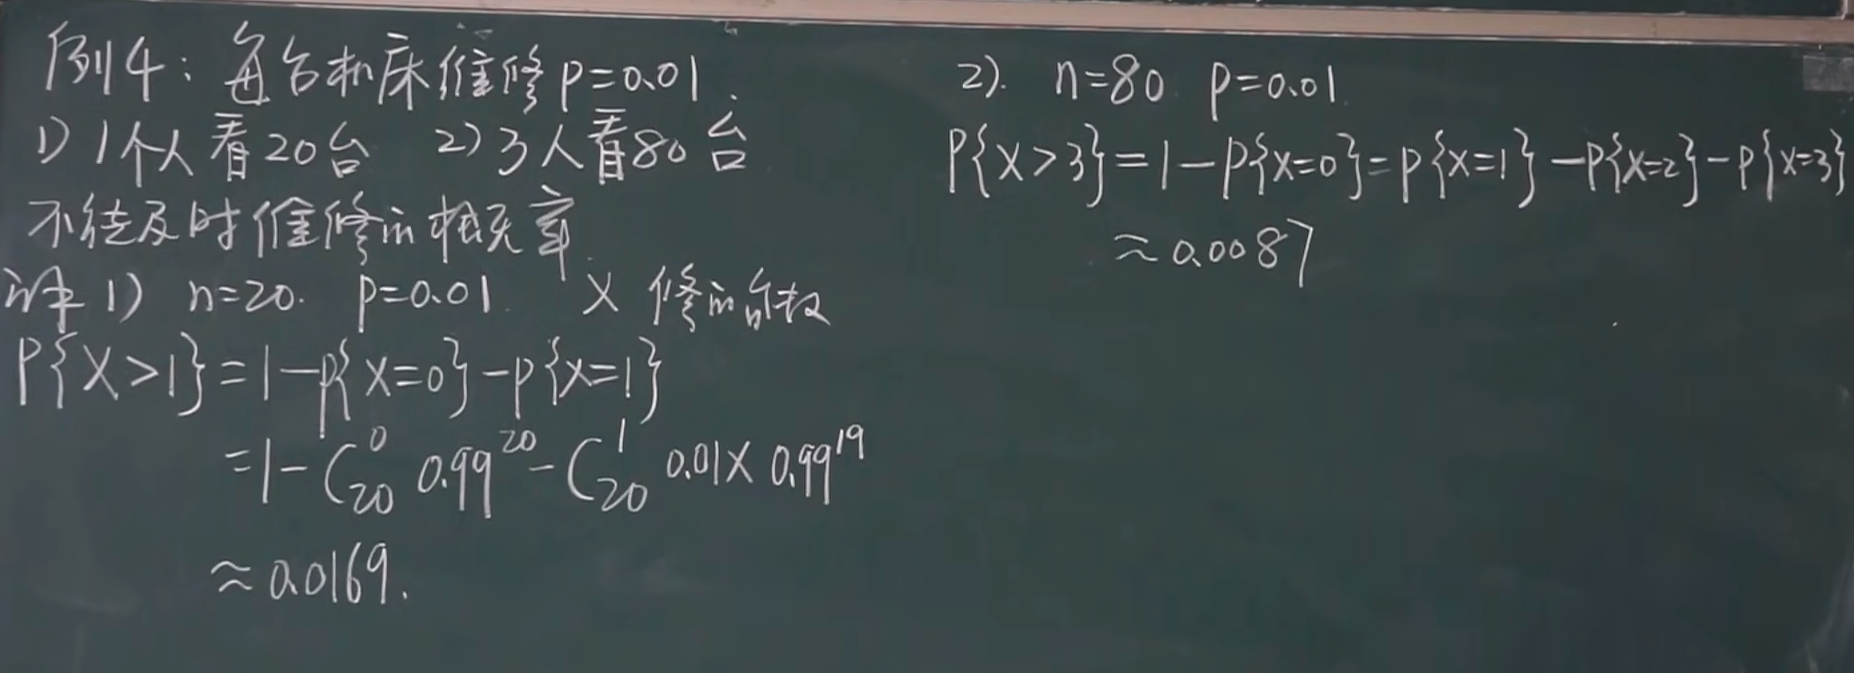 例4：每台机床维修p=0.01.
1) 1个人看20台 2) 3人看80台
不能及时维修的概率.
解 1) n=20. p=0.01 X 修的台数
P{X>1}=1-p{X=0}-p{X=1}
=1-C₂₀⁰ 0.99²⁰-C₂₀¹ 0.01×0.99¹⁹
≈0.0169.
2). n=80 p=0.01.
P{X>3}=1-P{X=0}=P{X=1}-P{X=2}-P{X=3}
≈0.0087